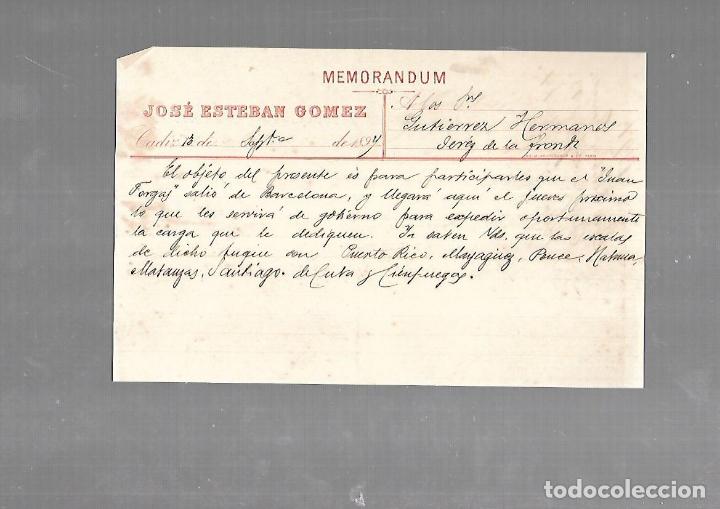 MEMORANDUM
JOSÉ ESTEBAN GOMEZ
Cadiz 13 de Septe de 1894
A los Srs
Gutierrez Hermanos
Jeréz de la Front
El objeto del presente es para participarles que el "Juan
Forgas" salió de Barcelona, y llegará aquí el jueves próximo
lo que les servirá de gobierno para expedir oportunamente
la carga que le dediquen. Ya saben Vds. que las escalas
de dicho buque son Puerto Rico, Mayaguez, Ponce, Habana,
Matanzas, Santiago de Cuba y Cienfuegos.
todocoleccion